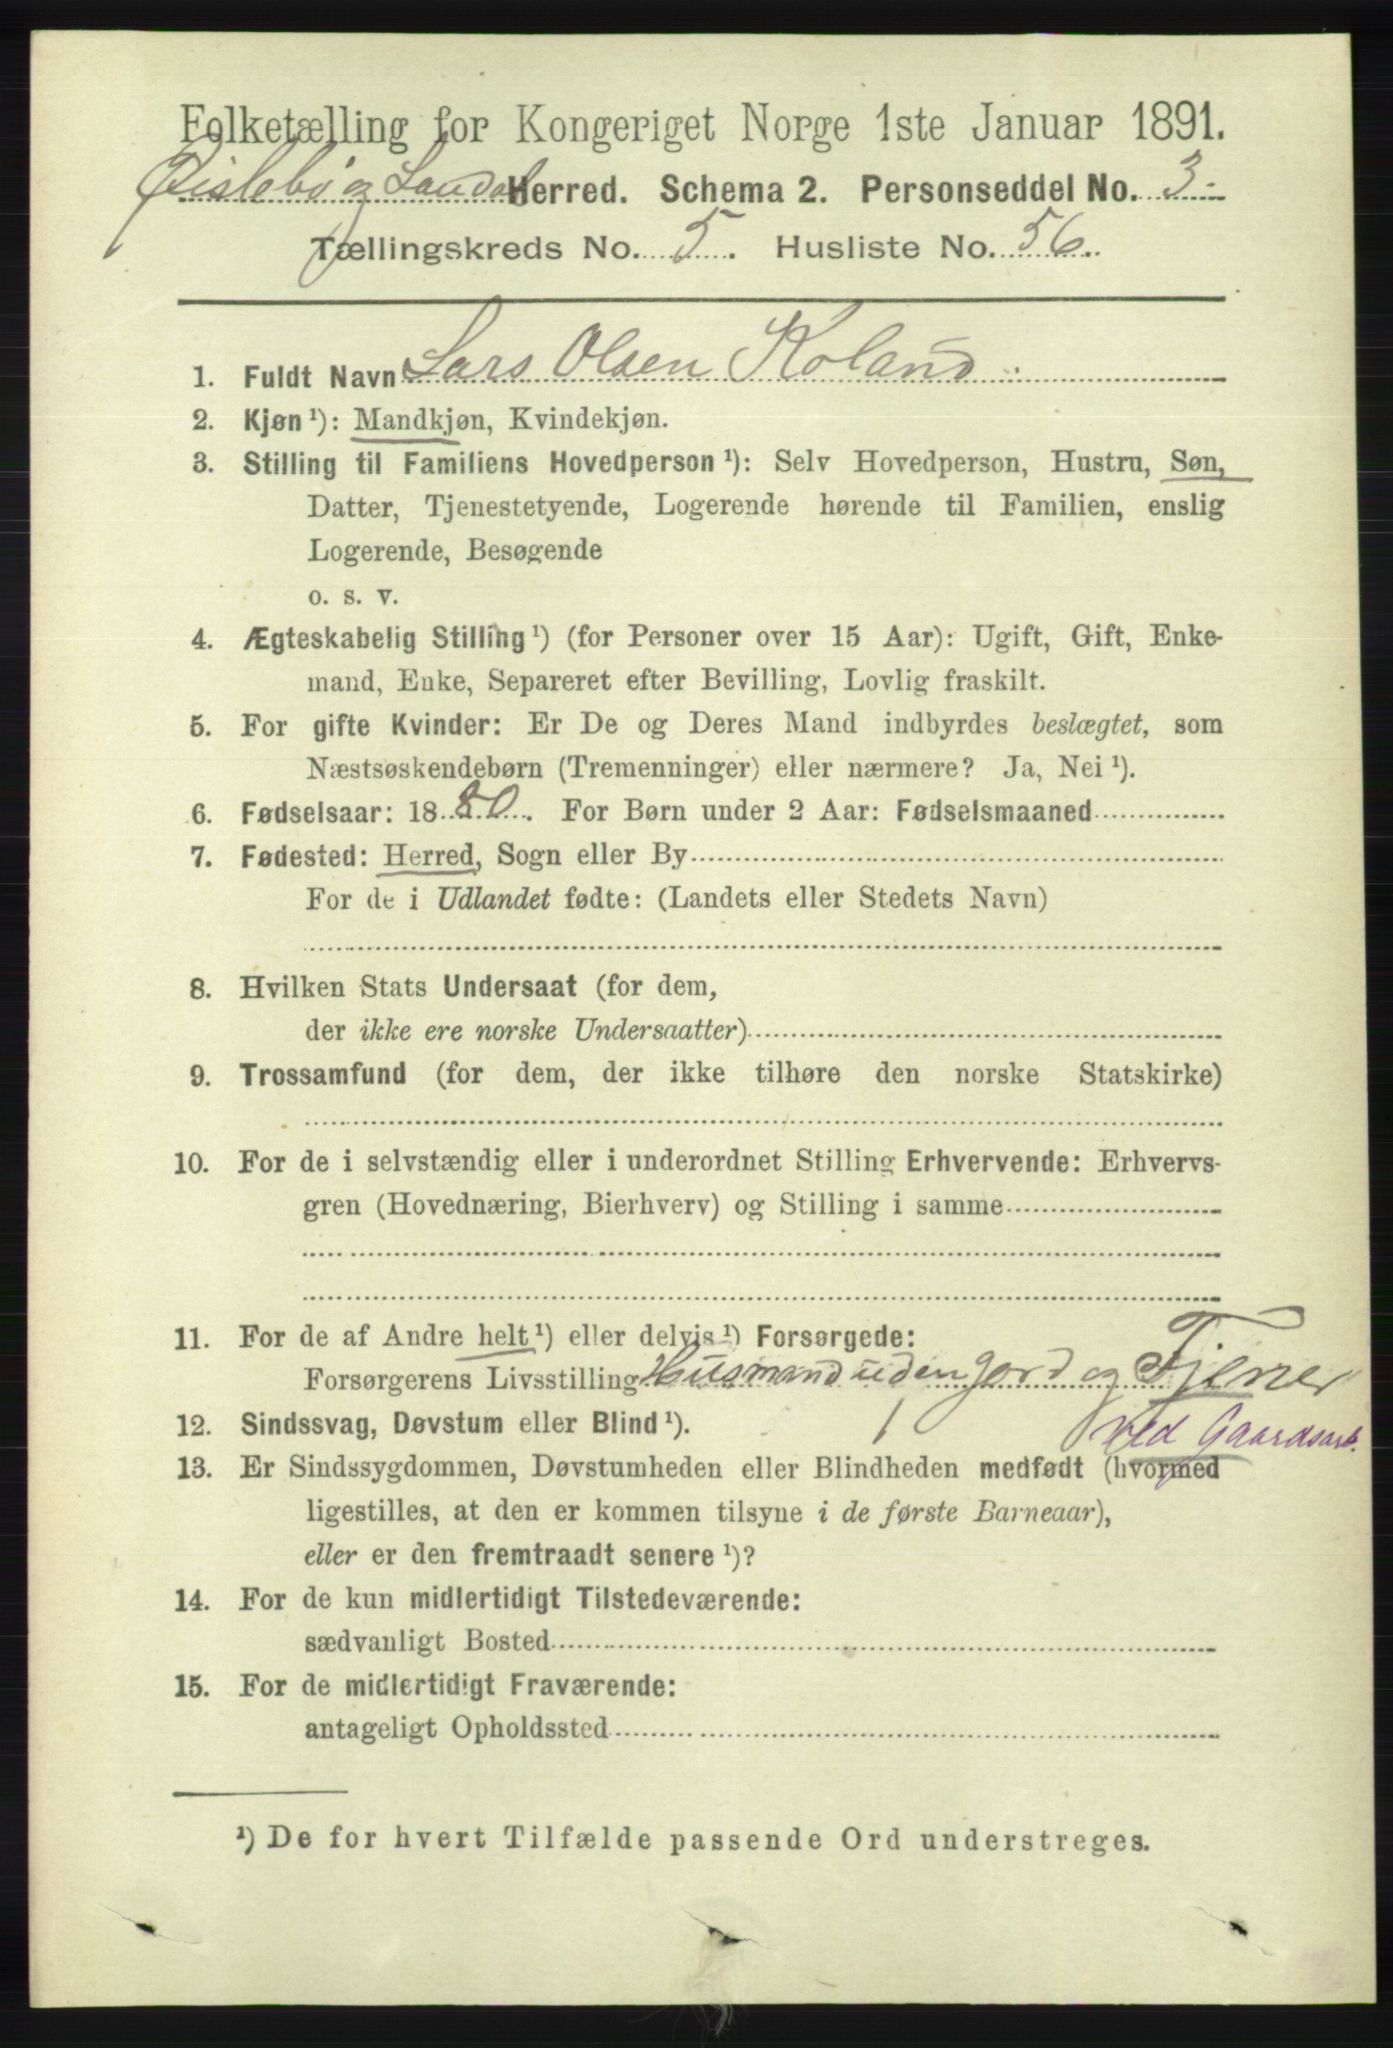 Folketælling for Kongeriget Norge 1ste Januar 1891.
Øislebø og Laudal Herred. Schema 2. Personseddel No. 3.
Tællingskreds No. 5. Husliste No. 56.
1. Fuldt Navn Lars Olsen Koland
2. Kjøn ¹): Mandkjøn, Kvindekjøn.
3. Stilling til Familiens Hovedperson ¹): Selv Hovedperson, Hustru, Søn,
Datter, Tjenestetyende, Logerende hørende til Familien, enslig
Logerende, Besøgende
o. s. v.
4. Ægteskabelig Stilling ¹) (for Personer over 15 Aar): Ugift, Gift, Enke-
mand, Enke, Separeret efter Bevilling, Lovlig fraskilt.
5. For gifte Kvinder: Er De og Deres Mand indbyrdes beslægtet, som
Næstsøskendebørn (Tremenninger) eller nærmere? Ja, Nei ¹).
6. Fødselsaar: 1880. For Børn under 2 Aar: Fødselsmaaned
7. Fødested: Herred, Sogn eller By
For de i Udlandet fødte: (Landets eller Stedets Navn)
8. Hvilken Stats Undersaat (for dem,
der ikke ere norske Undersaatter)
9. Trossamfund (for dem, der ikke tilhøre den norske Statskirke)
10. For de i selvstændig eller i underordnet Stilling Erhvervende: Erhvervs-
gren (Hovednæring, Bierhverv) og Stilling i samme
11. For de af Andre helt ¹) eller delvis ¹) Forsørgede:
Forsørgerens Livsstilling Husmand uden Jord og Tjener
ved Gaardsarb.
12. Sindssvag, Døvstum eller Blind ¹).
13. Er Sindssygdommen, Døvstumheden eller Blindheden medfødt (hvormed
ligestilles, at den er kommen tilsyne i de første Barneaar),
eller er den fremtraadt senere ¹)?
14. For de kun midlertidigt Tilstedeværende:
sædvanligt Bosted
15. For de midlertidigt Fraværende:
antageligt Opholdssted
¹) De for hvert Tilfælde passende Ord understreges.